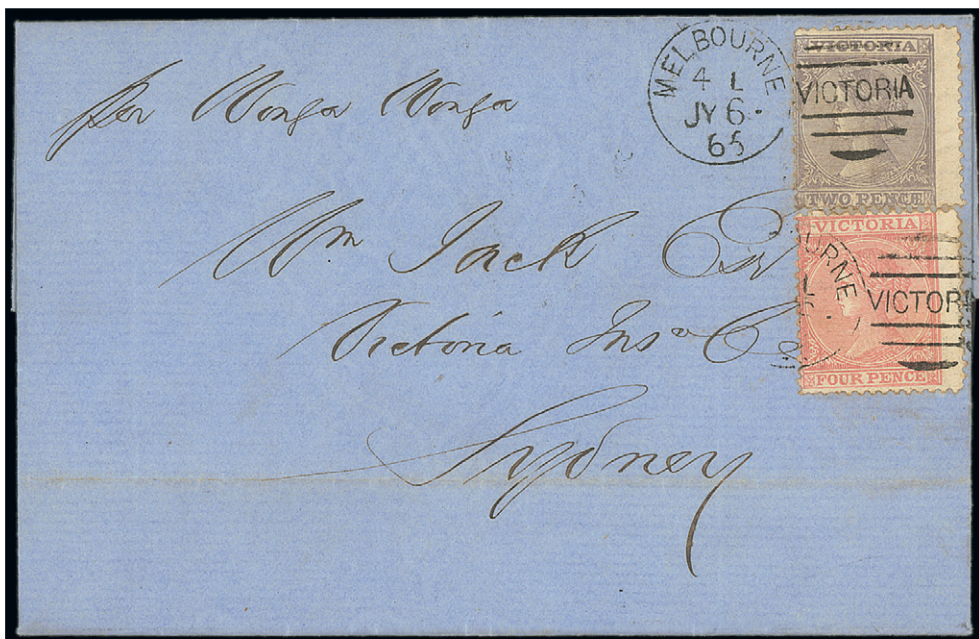 per Wonga Wonga
MELBOURNE
4 L
JY 6
65
VICTORIA
VICTORIA
TWO PENCE
Wm Jack Esq
VICTORIA
URNE
VICTORI
FOUR PENCE
Victoria Insce Co
Sydney